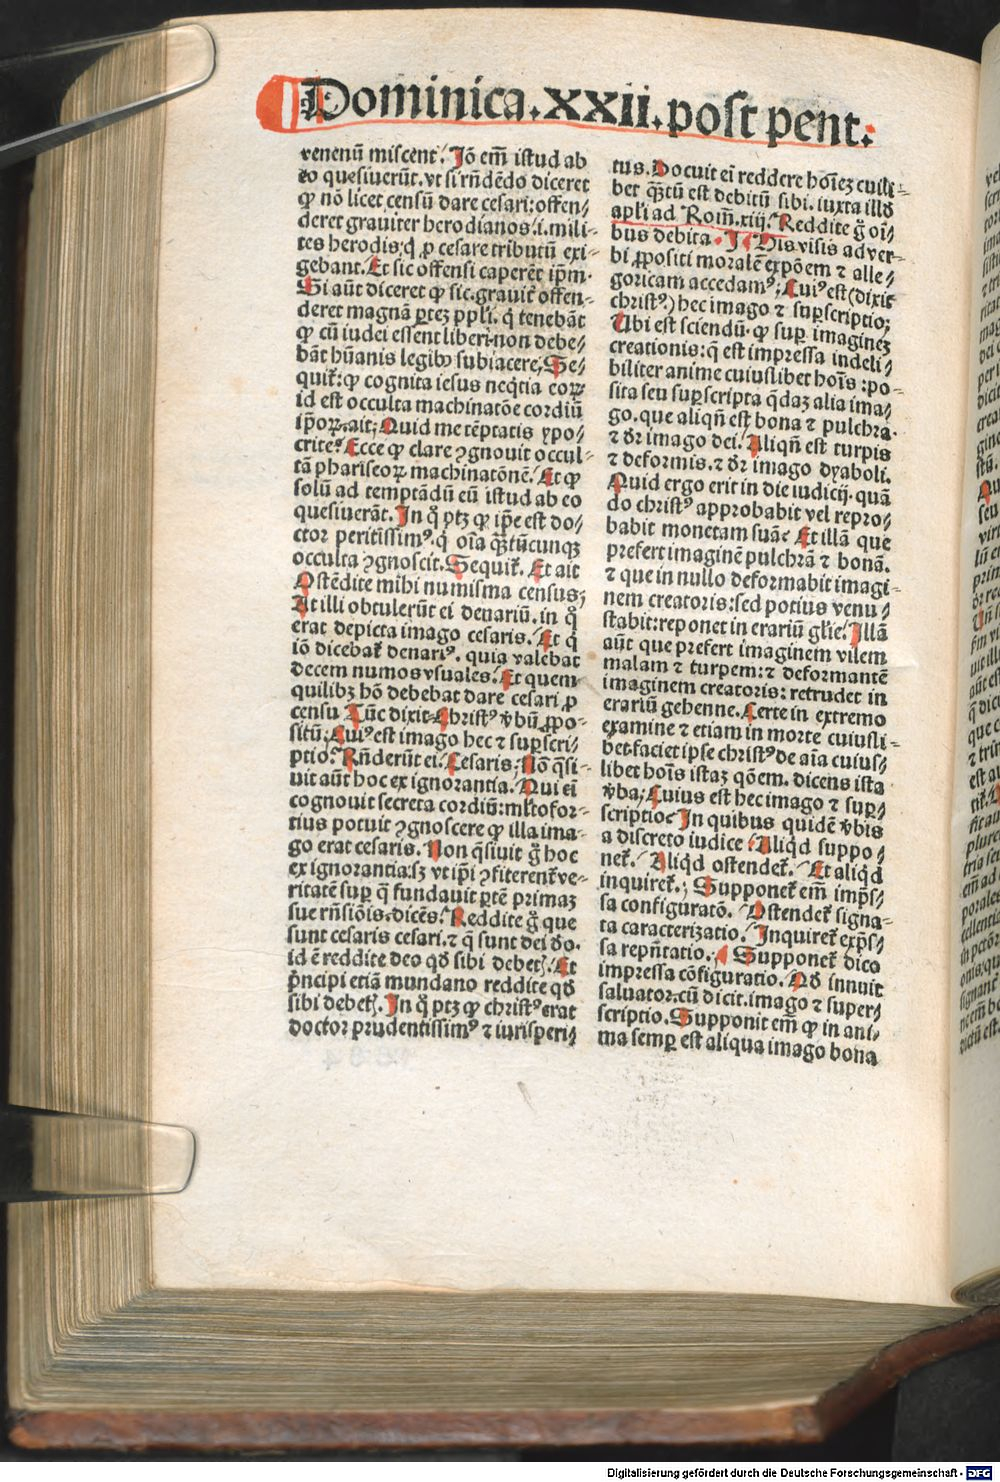 Dominica.xxii.post pent.
venenū miscent. Jō em̄ istud ab
eo quesiuerūt. vt si rn̄dēdo diceret
ꝙ nō licet censū dare cesari: offen⸗
deret grauiter herodianos .i. mili⸗
tes herodis: q̇ ꝓ cesare tributū exi⸗
gebant. Et sic offensi caperēt ip̄m.
Si aūt diceret ꝙ sic. grauiť offen⸗
deret magnā ꝑtez ppl'i. q̇ tenebāt
ꝙ cū iudei essent liberi non debe⸗
bāt hūanis legibꝫ subiacere. Se⸗
quiť: ꝙ cognita iesus neq̇tia eoꝝ
id est occulta machinatōe cordiū
ip̄oꝝ. ait; Quid me tēptatis ypo⸗
crite? Ecce ꝙ clare ꝯgnouit occul⸗
tā phariseoꝝ machinatōnē. Et ꝙ
solū ad temptādū eū istud ab eo
quesiuerāt. In q̊ ptꝫ ꝙ ip̄e est do⸗
ctor peritissimꝰ. q̇ oīa q̄ꝫtūcunqꝫ
occulta ꝯgnoscit. Sequiť. Et ait
Ostēdite mihi numisma census;
At illi obtulerūt ei denariū. in q̊
erat depicta imago cesaris. Et q̇
iō dicebať denariꝰ. quia valebat
decem numos vsuales. Et quem
quilibꝫ hō debebat dare cesari ꝓ
censu Tūc dixit Christꝰ v̄bū ꝓpo⸗
sitū; Cuiꝰ est imago hec ⁊ suꝑscri⸗
ptio? Rn̄derūt ei. Cesaris; Nō q̄si⸗
uit aūt hoc ex ignorantia. Qui ei
cognouit secreta cordiū: ml'to for⸗
tius potuit ꝯgnoscere ꝙ illa ima⸗
go erat cesaris. Non q̄siuit g̊ hoc
ex ignorantia: sꝫ vt ip̄i ꝯfiterenť ve⸗
ritatē suꝑ q̄ fundauit ꝑtē primaꝫ
sue rn̄siōis. dicēs. Reddite g̊ que
sunt cesaris cesari. ⁊ q̄ sunt dei do.
id ē reddite deo qd̄ sibi debetꝭ. Et
pͥncipi etiā mundano reddite qd̄
sibi debetꝭ. In q̊ ptꝫ ꝙ christꝰ erat
doctor prudentissimꝰ ⁊ iurisperi⸗
tus. Docuit ei reddere hoīeꝫ cuili⸗
bet q̄ꝫtū est debitū sibi. iuxta illd̄
apl'i ad Rom̄.xiij. Reddite g̊ oī⸗
bus debita. J His visis ad ver⸗
bi ꝓpositi moralē expōem ⁊ alle⸗
goricam accedamꝰ; Cuiꝰ est (dixit
christꝰ) hec imago ⁊ suꝑscriptio;
Ubi est sciendū. ꝙ suꝑ imagineꝫ
creationis: q̄ est impressa indeli⸗
biliter anime cuiuslibet hoīs: po⸗
sita seu suꝑscripta q̄daꝫ alia ima⸗
go. que aliqn̄ est bona ⁊ pulchra.
⁊ dr̄ imago dei. Aliqn̄ est turpis
⁊ deformis. ⁊ dr̄ imago dyaboli.
Quid ergo erit in die iudicij. quā
do christꝰ approbabit vel repro⸗
babit monetam suā? Et illā que
prefert imaginē pulchrā ⁊ bonā.
⁊ que in nullo deformabit imagi⸗
nem creatoris: sed potius venu⸗
stabit: reponet in erariū gl'ie. Illā
aūt que prefert imaginem vilem
malam ⁊ turpem: ⁊ deformantē
imaginem creatoris: retrudet in
erariū gehenne. Certe in extremo
examine ⁊ etiam in morte cuiusli⸗
bet faciet ipse christꝰ de aīa cuius⸗
libet hoīs istaꝫ qōem. dicens ista
v̄ba; Cuius est hec imago ⁊ suꝑ⸗
scriptio? In quibus quidē v̄bis
a discreto iudice Aliqd̄ suppo⸗
neť. Aliqd̄ ostendeť. Et aliqd̄
inquireť.; Supponeť em̄ imp̄s⸗
sa configuratō. Ostendeť signa⸗
ta caracterizatio. Inquireť exp̄s⸗
sa repn̄tatio. Supponeť dico
impressa cōfiguratio. Qd̄ innuit
saluator. cū dicit. imago ⁊ super⸗
scriptio. Supponit em̄ ꝙ in ani⸗
ma semꝑ est aliqua imago bona
Digitalisierung gefördert durch die Deutsche Forschungsgemeinschaft - DFG